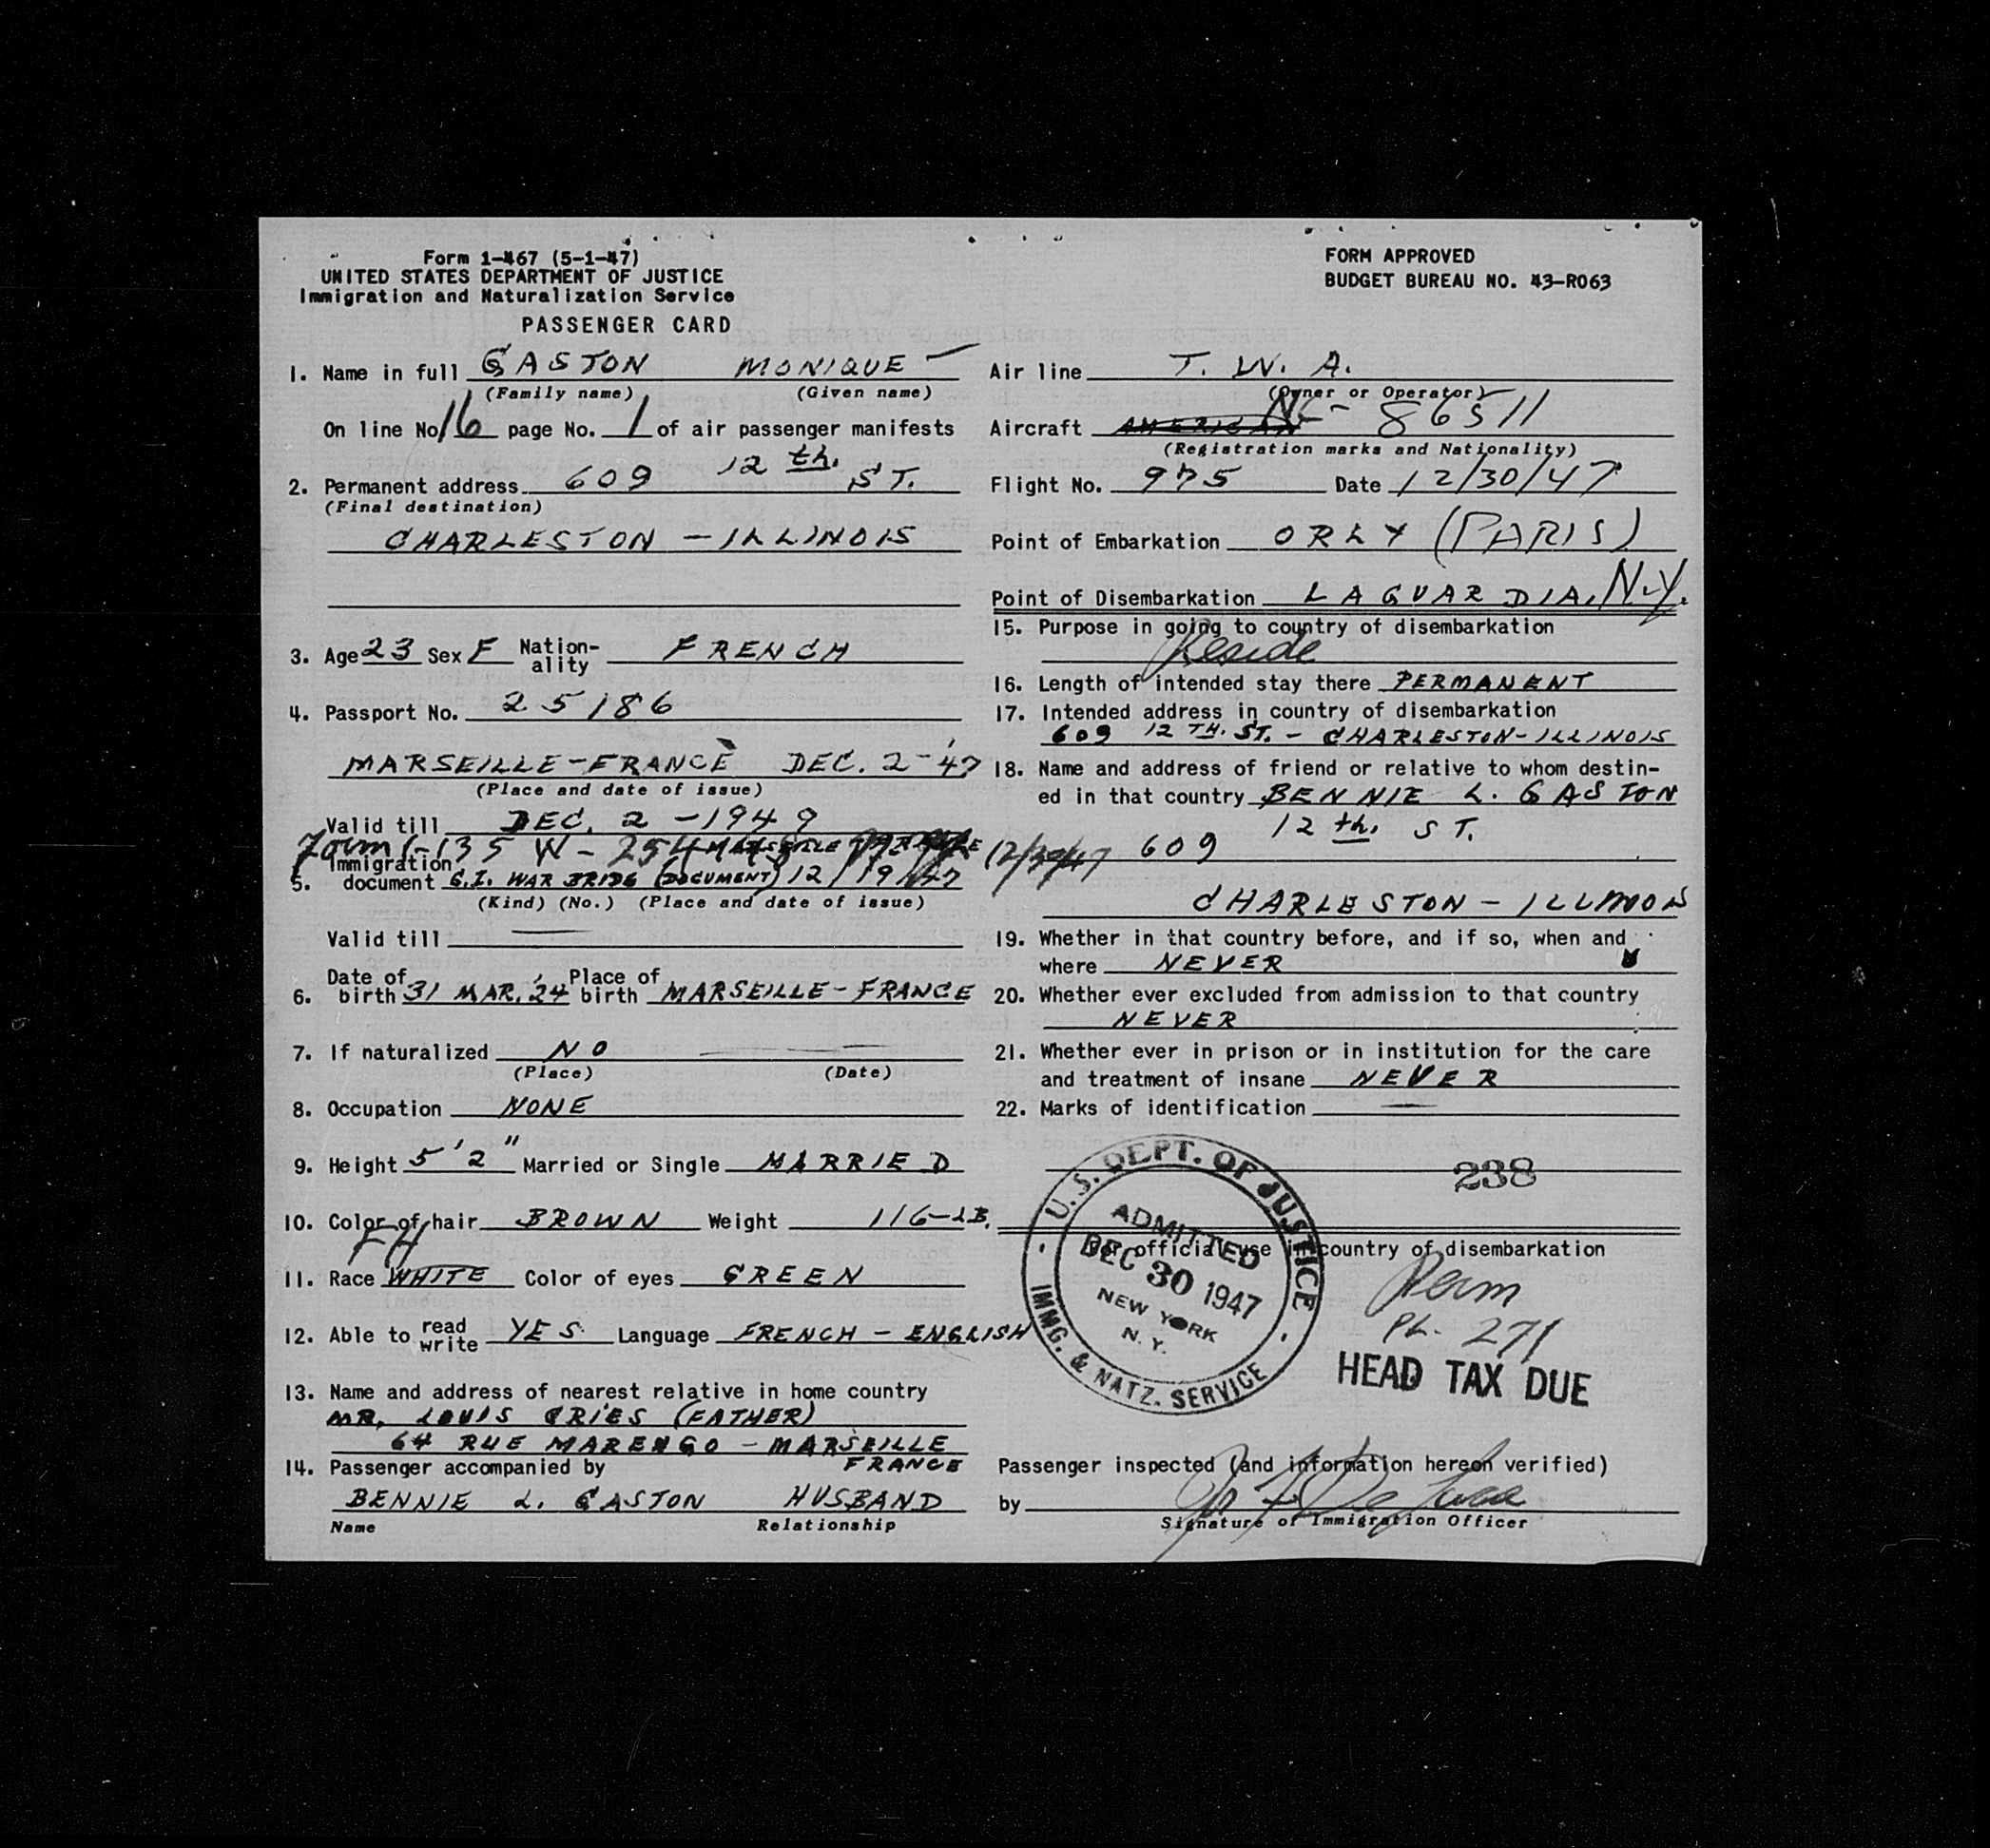 Form I-467 (5-1-47)
UNITED STATES DEPARTMENT OF JUSTICE
Immigration and Naturalization Service
PASSENGER CARD
FORM APPROVED
BUDGET BUREAU NO. 43-R063
1. Name in full GASTON MONIQUE
(Family name) (Given name)
On line No. 16 page No. 1 of air passenger manifests
2. Permanent address 609 12th. ST.
(Final destination)
CHARLESTON - ILLINOIS
3. Age 23 Sex F Nation-ality FRENCH
4. Passport No. 25186
MARSEILLE - FRANCE DEC. 2 - '47
(Place and date of issue)
Valid till DEC. 2 - 1949
Form I-135 W- 12/30/47
5. Immigration document G.I. WAR BRIDE (DOCUMENT) 12/19/47
(Kind) (No.) (Place and date of issue)
Valid till
6. Date of birth 31 MAR. '24 Place of birth MARSEILLE - FRANCE
7. If naturalized NO
(Place) (Date)
8. Occupation NONE
9. Height 5'2" Married or Single MARRIED
10. Color of hair BROWN Weight 116-LB.
FH
11. Race WHITE Color of eyes GREEN
12. Able to read write YES Language FRENCH - ENGLISH
13. Name and address of nearest relative in home country
MR. LOUIS CRIES (FATHER)
64 RUE MARENGO - MARSEILLE
FRANCE
14. Passenger accompanied by
BENNIE L. GASTON HUSBAND
Name Relationship
Air line T. W. A.
(Owner or Operator)
Aircraft AMERICAN NC- 86511
(Registration marks and Nationality)
Flight No. 975 Date 12/30/47
Point of Embarkation ORLY (PARIS)
Point of Disembarkation LAGUARDIA, N.Y.
15. Purpose in going to country of disembarkation
Reside
16. Length of intended stay there PERMANENT
17. Intended address in country of disembarkation
609 12TH. ST. - CHARLESTON - ILLINOIS
18. Name and address of friend or relative to whom destin-
ed in that country BENNIE L. GASTON
609 12th. ST.
CHARLESTON - ILLINOIS
19. Whether in that country before, and if so, when and
where NEVER
20. Whether ever excluded from admission to that country
NEVER
21. Whether ever in prison or in institution for the care
and treatment of insane NEVER
22. Marks of identification
238
For official use in country of disembarkation
U.S. DEPT. OF JUSTICE
ADMITTED
DEC 30 1947
NEW YORK
N. Y.
IMMG. & NATZ. SERVICE
Perm
PL. 271
HEAD TAX DUE
Passenger inspected (and information hereon verified)
by
Signature of Immigration Officer